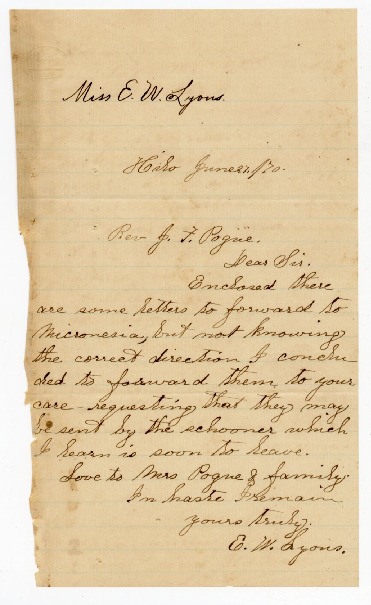 Miss E. W. Lyons.
Hilo June 27, /70.
Rev J. F. Pogue.
Dear Sir.
Enclosed there
are some letters to forward to
Micronesia, but not knowing
the correct direction I conclu-
ded to forward them to your
care - requesting that they may
be sent by the schooner which
I learn is soon to leave.
Love to Mrs Pogue & family.
In haste I remain
yours truly,
E. W. Lyons.